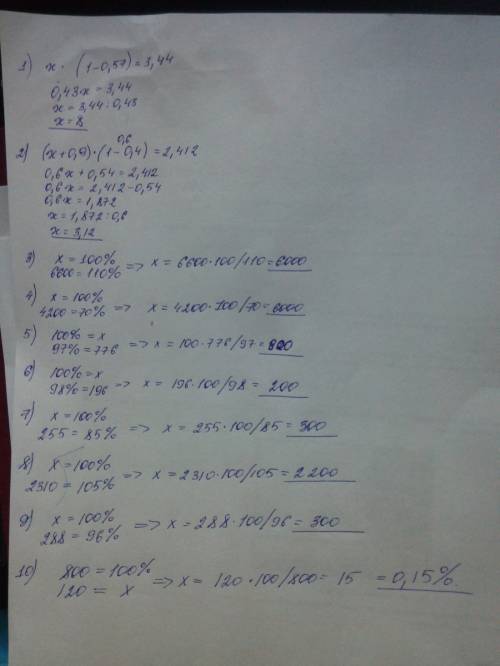 1) x · (1-0,57)=3,44
0,43·x = 3,44
x = 3,44 : 0,43
x = 8
0,6
2) (x+0,9)·(1-0,4)=2,412
0,6x + 0,54 = 2,412
0,6x = 2,412-0,54
0,6x = 1,872
x = 1,872 : 0,6
x = 3,12
3) x = 100%
6600 = 110% => x = 6600·100/110 = 6000
4) x = 100%
4200 = 70% => x = 4200·100/70 = 6000
5) 100% = x
97% = 776 => x = 100·776/97 = 800
6) 100% = x
98% = 196 => x = 196·100/98 = 200
7) x = 100%
255 = 85% => x = 255·100/85 = 300
8) x = 100%
2310 = 105% => x = 2310·100/105 = 2200
9) x = 100%
288 = 96% => x = 288·100/96 = 300
10) 800 = 100%
120 = x => x = 120·100/800 = 15 = 0,15%